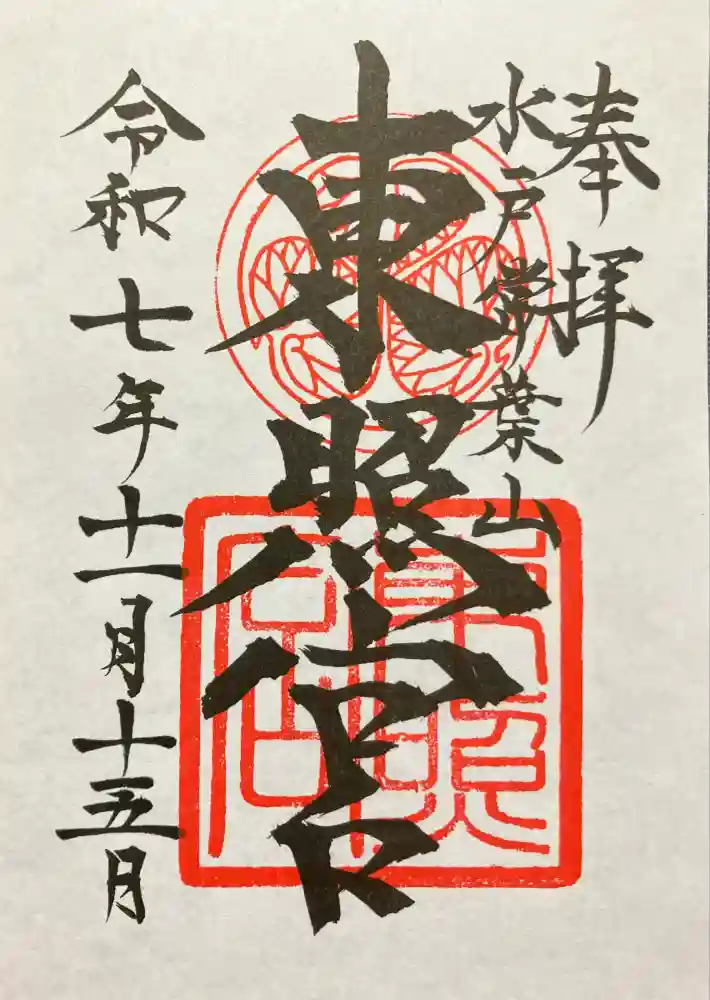 奉拝
水戸常葉山
東照宮
東照宮
令和七年十一月十五月